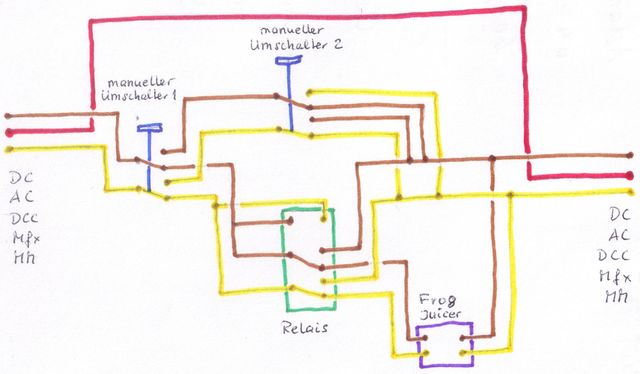 manueller
Umschalter 2
manueller
Umschalter 1
DC
AC
DCC
Mfx
MM
DC
AC
DCC
Mfx
MM
Frog
Juicer
Relais